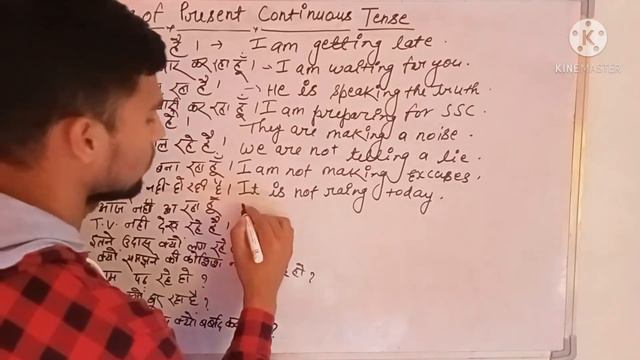 of Present Continuous Tense
है । → I am getting late.
कर रहा हूँ । → I am waiting for you.
रहा है । → He is speaking the truth.
कर रहा हूँ । I am preparing for SSC.
है । They are making a noise.
रहे है । We are not telling a lie.
बना रहा हूँ । I am not making Excuses.
नही हो रही है । It is not raing today.
आज नही आ रहा है
T.V. नही देख रहे है ।
इतने उदास क्यों लग रहे
क्यों समझने की कोशिश हो ?
पढ़ रहे हो ?
रहा है ?
क्यों बर्बाद ?
KINEMASTER